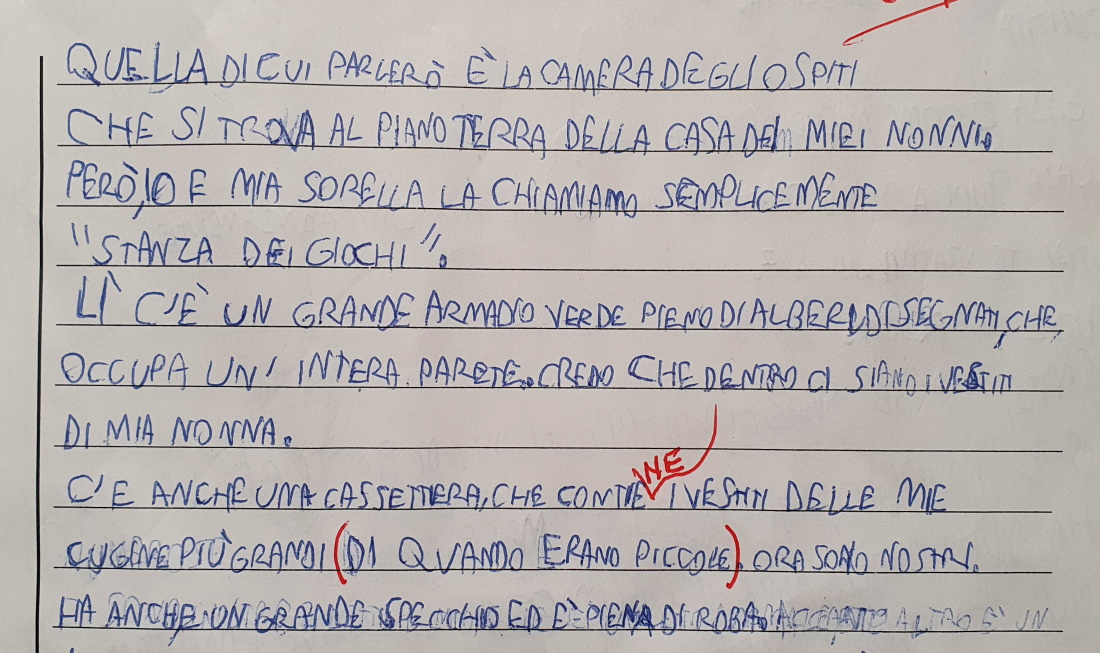 QUELLA DI CUI PARLERÒ È LA CAMERA DEGLI OSPITI
CHE SI TROVA AL PIANO TERRA DELLA CASA DEI MIEI NONNI.
PERÒ, IO E MIA SORELLA LA CHIAMIAMO SEMPLICEMENTE
"STANZA DEI GIOCHI".
LÌ C'È UN GRANDE ARMADIO VERDE PIENO DI ALBERI DISEGNATI, CHE
OCCUPA UN' INTERA PARETE. CREDO CHE DENTRO CI SIANO I VESTITI
DI MIA NONNA.
NE
C'E ANCHE UNA CASSETTIERA, CHE CONTIE I VESTITI DELLE MIE
CUGINE PIÙ GRANDI (DI QUANDO ERANO PICCOLE). ORA SONO NOSTRI.
HA ANCHE UN GRANDE SPECCHIO ED È PIENA DI ROBA. ALTRO È UN